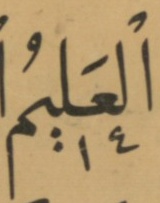 الْعَليمُ
١٤